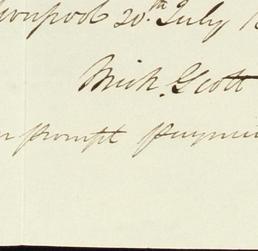 Liverpool 20th July 18
Mich. Scott
n prompt payme